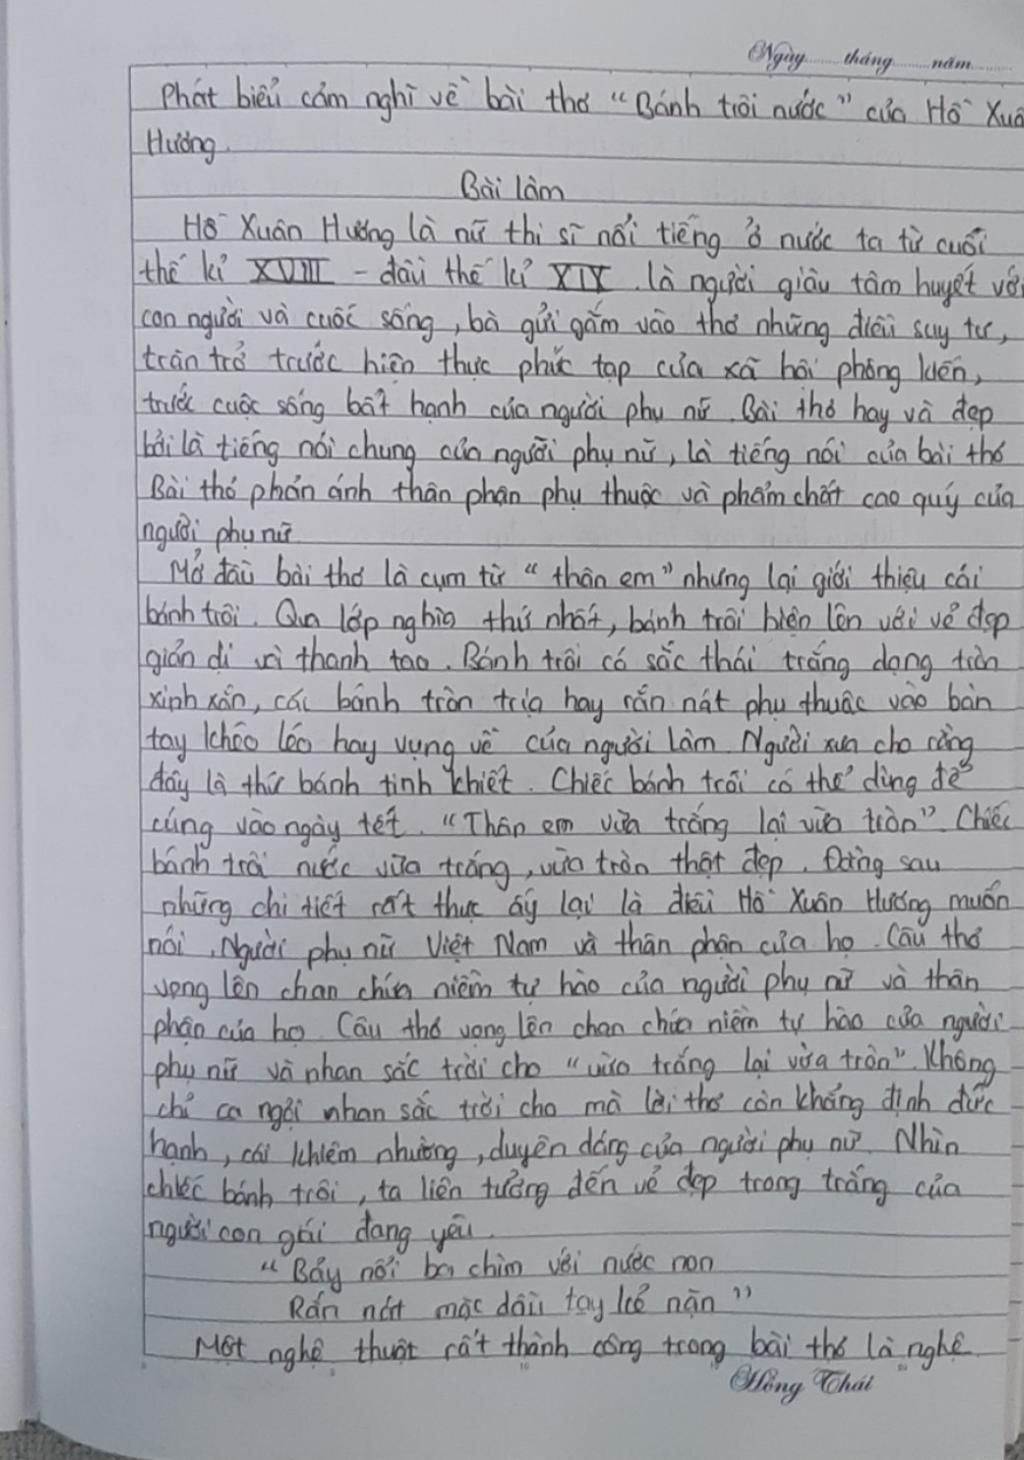 Ngày........tháng........năm........
Phát biểu cảm nghĩ về bài thơ "Bánh trôi nước" của Hồ Xuâ
Hương.
Bài làm
Hồ Xuân Hương là nữ thi sĩ nổi tiếng ở nước ta từ cuối
thế kỉ XVIII - đầu thế kỉ XIX. là người giàu tâm huyết với
con người và cuốc sống, bà gửi gắm vào thơ những điều suy tư,
trăn trở trước hiện thực phức tạp của xã hội phông kiến,
trước cuộc sống bất hạnh của người phụ nữ. Bài thơ hay và đẹp
bởi là tiếng nói chung của người phụ nữ, là tiếng nói của bài thơ
Bài thơ phản ánh thân phận phụ thuộc và phẩm chất cao quý của
người phụ nữ.
Mở đầu bài thơ là cụm từ "thân em" nhưng lại giới thiệu cái
bánh trôi. Qua lớp nghĩa thứ nhất, bánh trôi hiện lên với vẻ đẹp
giản dị và thanh tao. Bánh trôi có sắc thái trắng dạng tròn
xinh xắn, các bánh tròn trịa hay rắn nát phụ thuộc vào bàn
tay khéo léo hay vụng về của người làm. Người xưa cho rằng
đây là thứ bánh tinh khiết. Chiếc bánh trôi có thể dùng để
cúng vào ngày tết. "Thân em vừa trắng lại vừa tròn". Chiếc
bánh trôi nước vừa trắng, vừa tròn thật đẹp. Đằng sau
những chi tiết rất thực ấy lại là điều Hồ Xuân Hương muốn
nói. Người phụ nữ Việt Nam và thân phận của họ. Câu thơ
vọng lên chan chứa niềm tự hào của người phụ nữ và thân
phận của họ. Câu thơ vọng lên chan chứa niềm tự hào của người
phụ nữ và nhan sắc trời cho "vừa trắng lại vừa tròn". Không
chỉ ca ngợi nhan sắc trời cho mà lời thơ còn khẳng định đức
hạnh, cái khiêm nhường, duyên dáng của người phụ nữ. Nhìn
chiếc bánh trôi, ta liên tưởng đến vẻ đẹp trong trắng của
người con gái đang yêu.
"Bảy nổi ba chìm với nước non
Rắn nát mặc dầu tay kẻ nặn"
Một nghệ thuật rất thành công trong bài thơ là nghệ
Hồng Thái